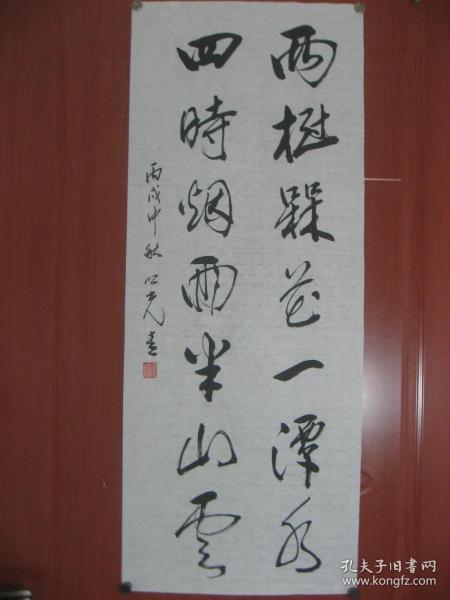 兩樹槑花一潭水
四時烟雨半山雲
丙戌中秋 光書
孔夫子旧书网
www.kongfz.com